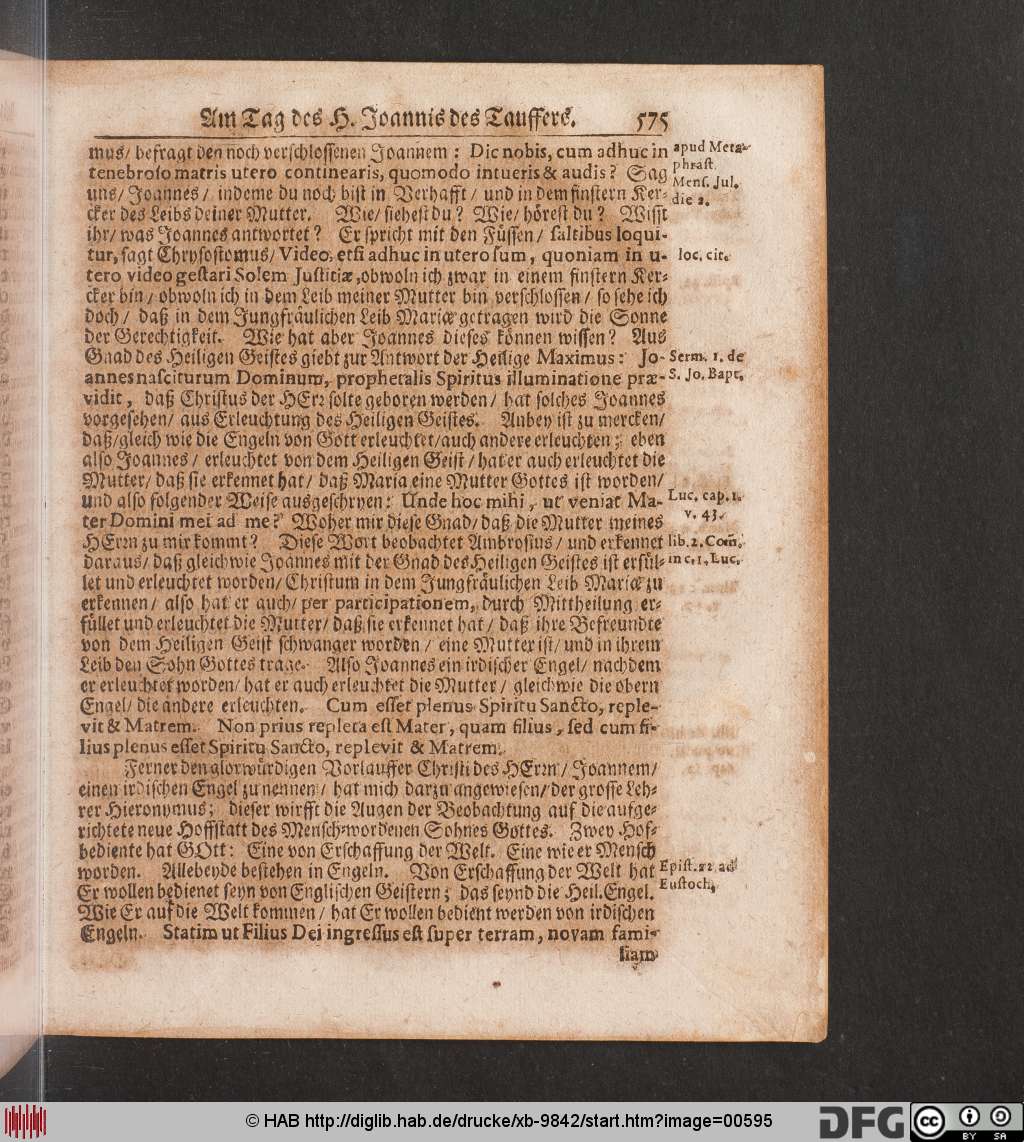 Am Tag des H. Joannis des Tauffers. 575
mus/ befragt den noch verschlossenen Joannem: Dic nobis, cum adhuc in
tenebroso matris utero continearis, quomodo intueris & audis? Sag
uns/ Joannes/ indeme du noch bist in Verhafft/ und in dem finstern Ker-
cker des Leibs deiner Mutter. Wie/ siehest du? Wie/ hörest du? Wisst
ihr/ was Joannes antwortet? Er spricht mit den Füssen/ saltibus loqui-
tur, sagt Chrysostomus/ Video, etsi adhuc in utero sum, quoniam in u-
tero video gestari Solem Justitiæ, obwoln ich zwar in einem finstern Ker-
cker bin/ obwoln ich in dem Leib meiner Mutter bin verschlossen/ so sehe ich
doch/ daß in dem Jungfräulichen Leib Mariæ getragen wird die Sonne
der Gerechtigkeit. Wie hat aber Joannes dieses können wissen? Aus
Gnad des Heiligen Geistes giebt zur Antwort der Heilige Maximus: Jo-
annes nasciturum Dominum, prophetalis Spiritus illuminatione præ-
vidit, daß Christus der HErr solte geboren werden/ hat solches Joannes
vorgesehen/ aus Erleuchtung des Heiligen Geistes. Anbey ist zu mercken/
daß/ gleich wie die Engeln von Gott erleuchtet/ auch andere erleuchten; eben
also Joannes/ erleuchtet von dem Heiligen Geist/ hat er auch erleuchtet die
Mutter/ daß sie erkennet hat/ daß Maria eine Mutter Gottes ist worden/
und also folgender Weise ausgeschryen: Unde hoc mihi, ut veniat Ma-
ter Domini mei ad me? Woher mir diese Gnad/ daß die Mutter meines
HErrn zu mir kommt? Diese Wort beobachtet Ambrosius/ und erkennet
daraus/ daß gleich wie Joannes mit der Gnad des Heiligen Geistes ist erfül-
let und erleuchtet worden/ Christum in dem Jungfräulichen Leib Mariæ zu
erkennen/ also hat er auch/ per participationem, durch Mittheilung er-
füllet und erleuchtet die Mutter/ daß sie erkennet hat/ daß ihre Befreundte
von dem Heiligen Geist schwanger worden/ eine Mutter ist/ und in ihrem
Leib den Sohn Gottes trage. Also Joannes ein irdischer Engel/ nachdem
er erleuchtet worden/ hat er auch erleuchtet die Mutter/ gleich wie die obern
Engel/ die andere erleuchten. Cum esset plenus Spiritu Sancto, reple-
vit & Matrem. Non prius repleta est Mater, quam filius, sed cum fi-
lius plenus esset Spiritu Sancto, replevit & Matrem.
Ferner den glorwürdigen Vorlauffer Christi des HErrn/ Joannem/
einen irdischen Engel zu nennen/ hat mich darzu angewiesen/ der grosse Leh-
rer Hieronymus; dieser wirfft die Augen der Beobachtung auf die aufge-
richtete neue Hoffstatt des Mensch-wordenen Sohnes Gottes. Zwey Hof-
bediente hat GOtt: Eine von Erschaffung der Welt. Eine wie er Mensch
worden. Allebeyde bestehen in Engeln. Von Erschaffung der Welt hat
Er wollen bedienet seyn von Englischen Geistern; das seynd die Heil. Engel.
Wie Er auf die Welt kommen/ hat Er wollen bedient werden von irdischen
Engeln. Statim ut Filius Dei ingressus est super terram, novam fami-
liam
apud Meta-
phrast.
Mens. Jul.
die 2.
loc. cit.
Serm. 1. de
S. Jo. Bapt.
Luc. cap. 1.
v. 43.
lib. 2. Com̃.
in c. 1. Luc.
Epist. 22. ad
Eustoch.
© HAB http://diglib.hab.de/drucke/xb-9842/start.htm?image=00595
DFG
cc
BY SA